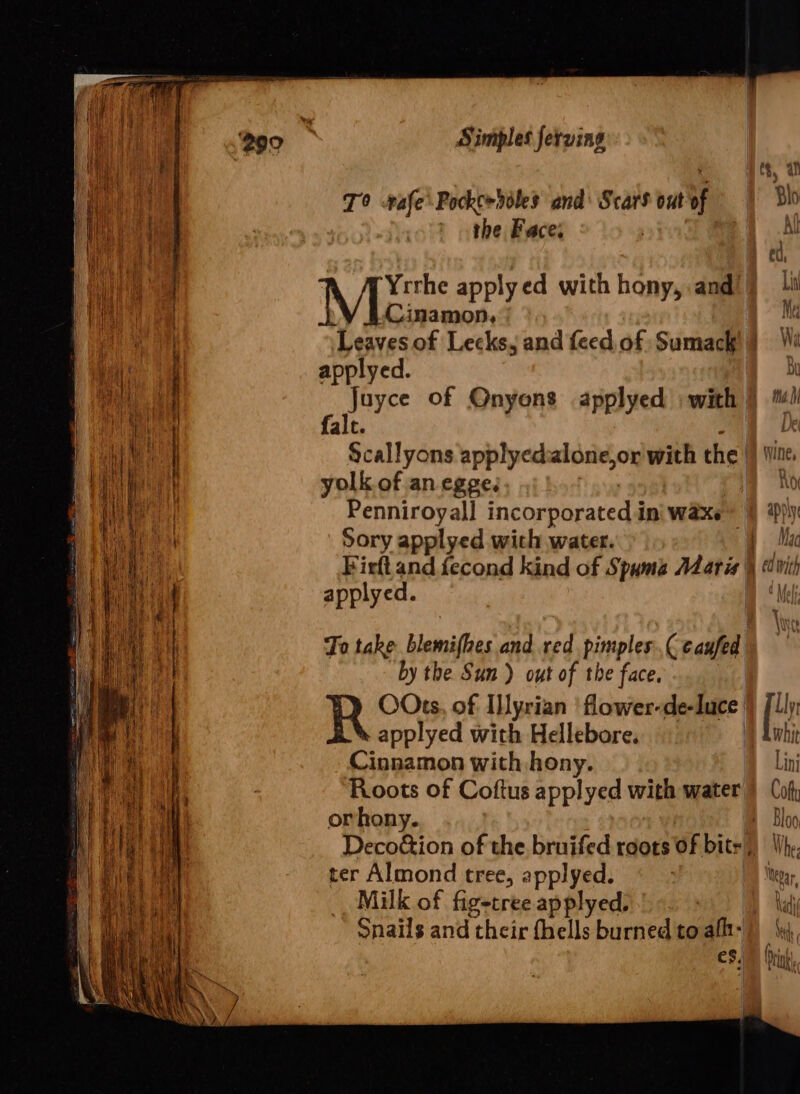 290 Simples ſerving
TO raſe Pocke-holes and Scars out of
the Face;
MYrrhe applyed with hony, and
Cinamon.
Leaves of Lecks, and ſeed of Sumack
applyed.
Juyce of Onyons applyed with
ſalt.
Scallyons applyed alone, or with the
yolk of an egge.
Penniroyall incorporated in waxe
Sory applyed with water.
Firſt and ſecond kind of Spuma Maris
applyed.
To take blemiſhes and red pimples (cauſed
by the Sun) out of the face.
ROOts, of Illyrian flower-de-luce
applyed with Hellebore.
Cinnamon with hony.
Roots of Coſtus applyed with water
or hony.
Decoction of the bruiſed roots of bit-
ter Almond tree, applyed.
Milk of fig-tree applyed.
Snails and their ſhells burned to aſh-
es.